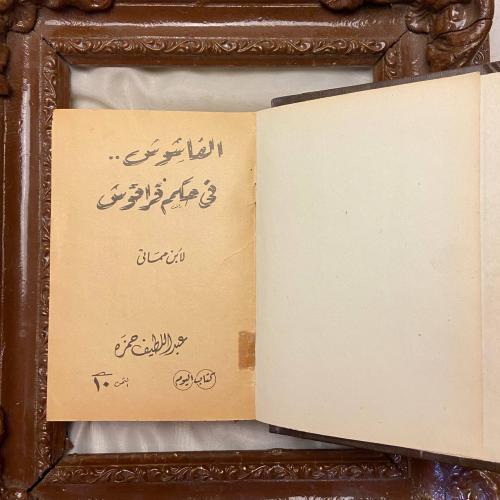 الفاشوش ..
في حكم قراقوش
لابن مماتي
عبد اللطيف حمزه
كتاب اليوم
الثمن ١٠